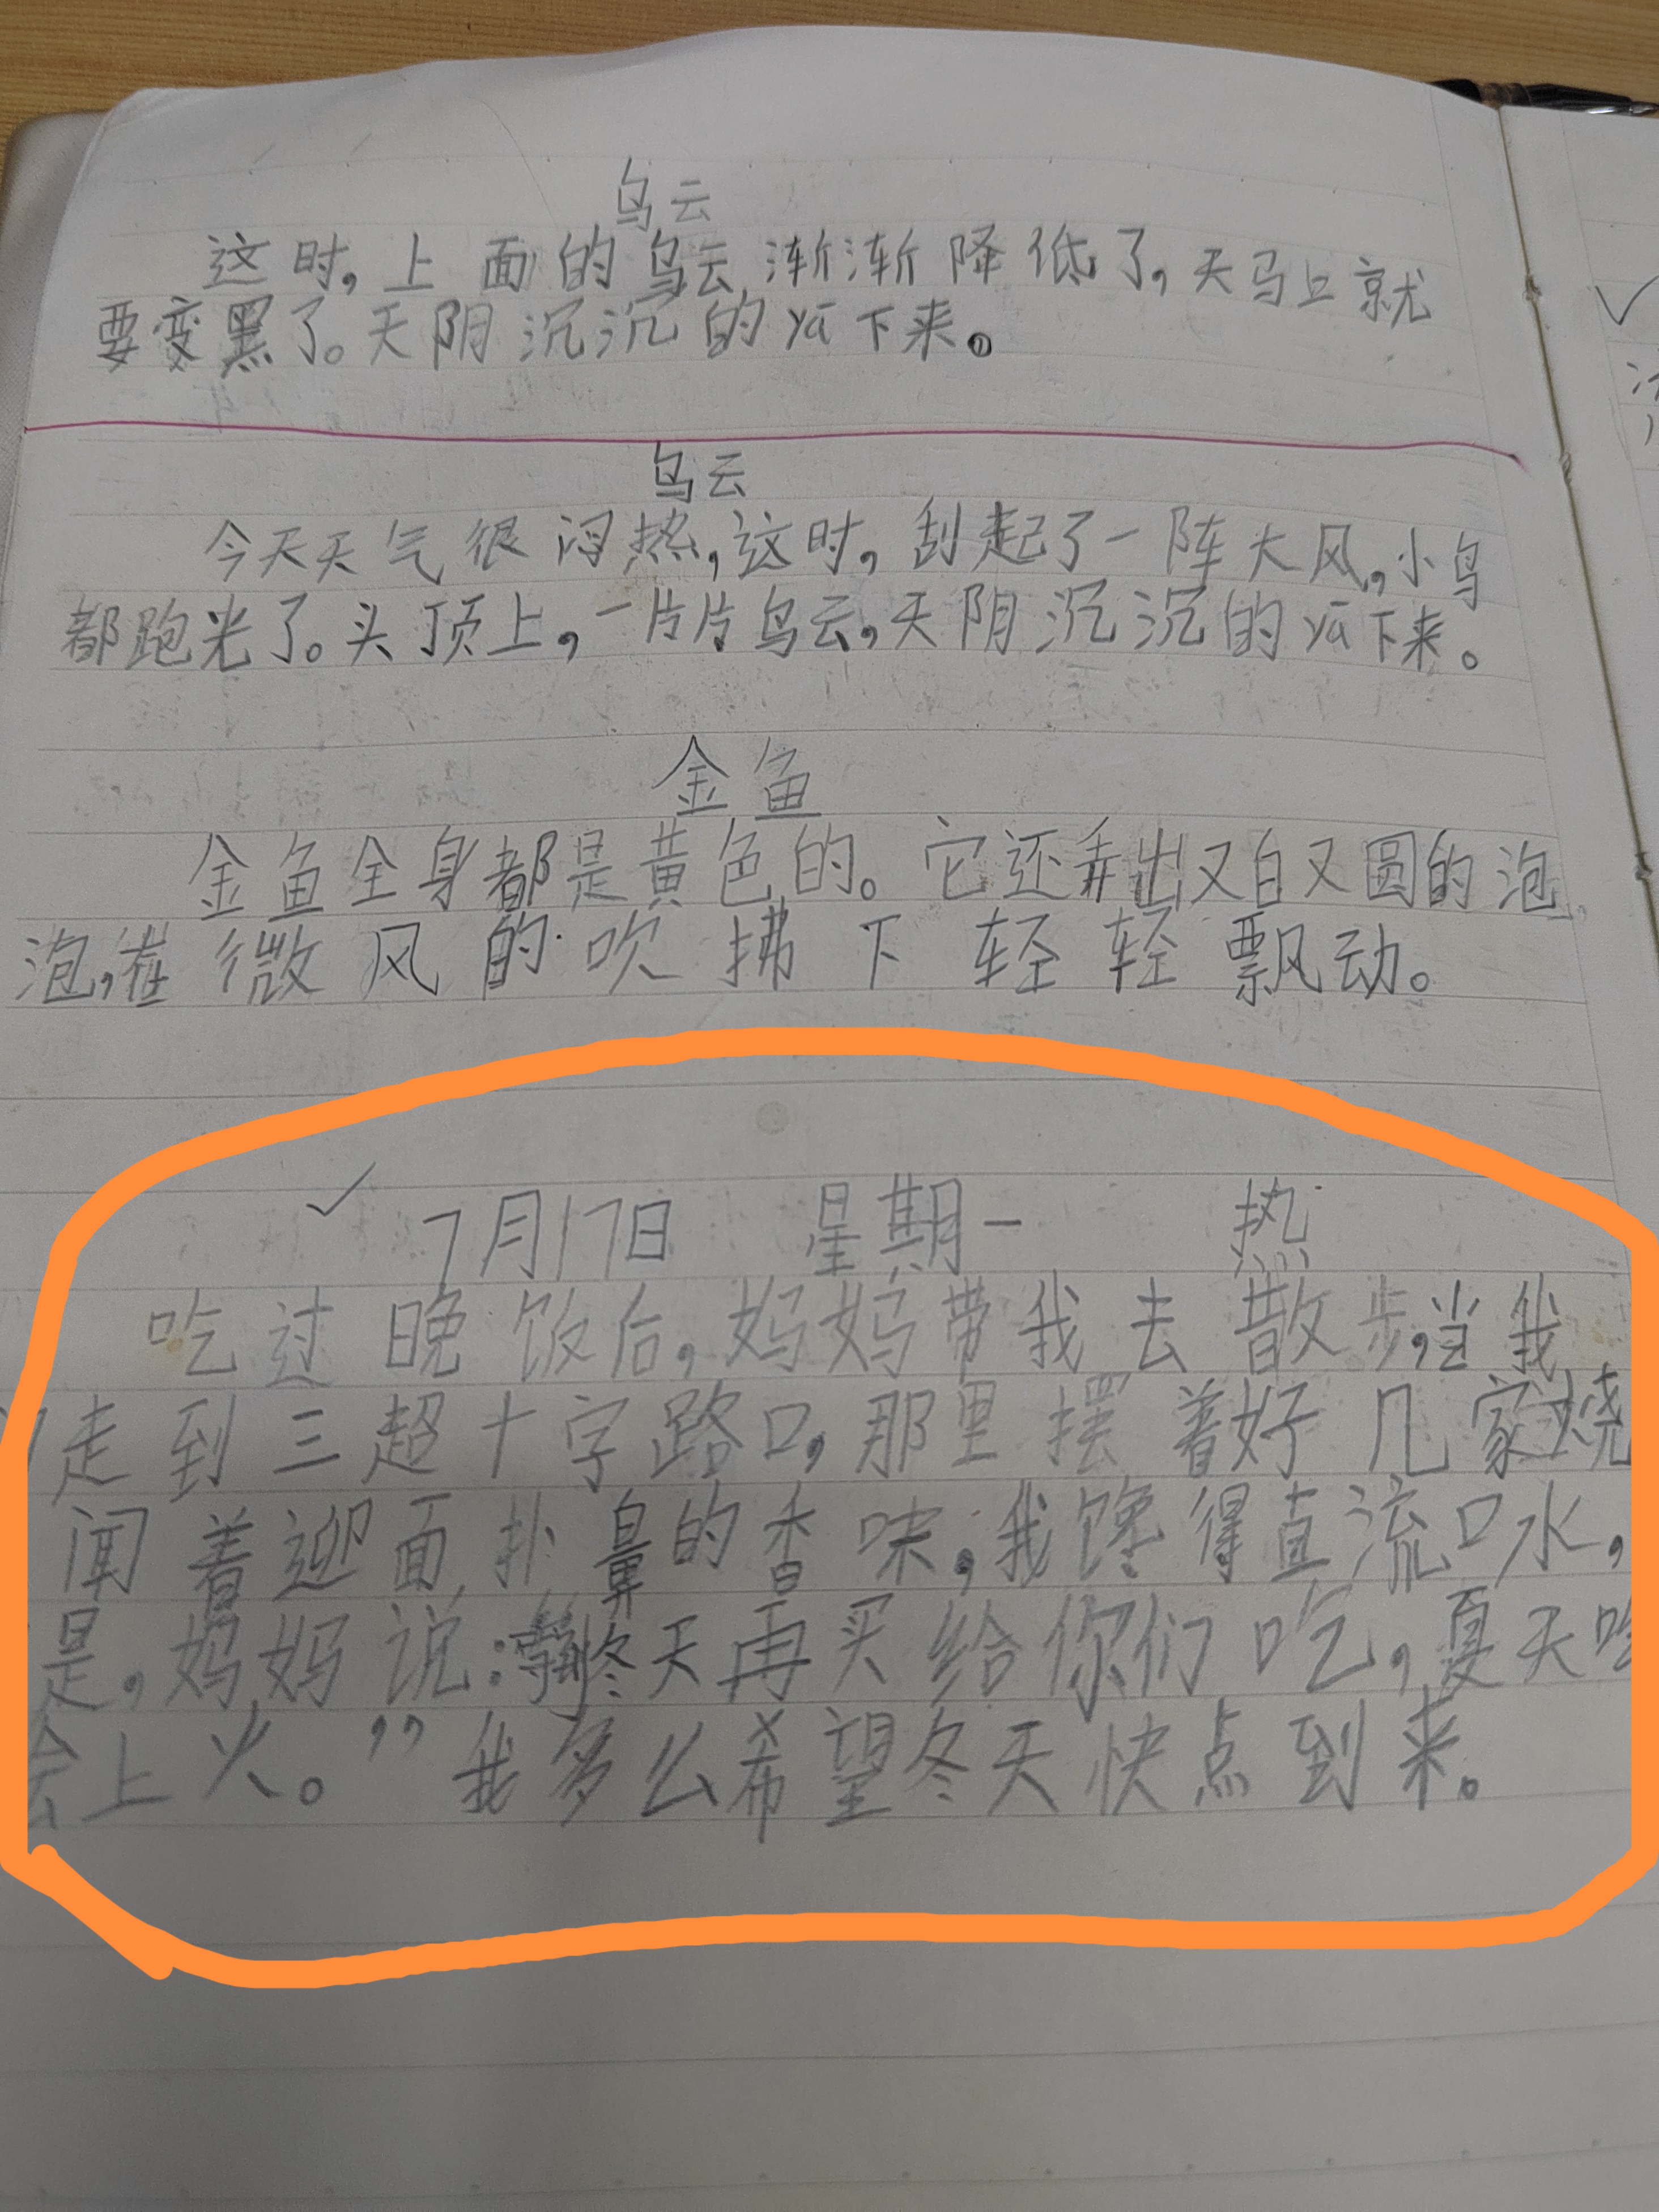 乌云
这时,上面的乌云渐渐降低了,天马上就
要变黑了。天阴沉沉的ya下来。
乌云
今天天气很闷热,这时,刮起了一阵大风,小鸟
都跑光了。头顶上,一片片乌云,天阴沉沉的ya下来。
金鱼
金鱼全身都是黄色的。它还弄出又白又圆的泡
泡,在微风的吹拂下轻轻飘动。
✓ 7月17日 星期一 热
吃过晚饭后,妈妈带我去散步,当我
走到三超十字路口,那里摆着好几家烧
闻着迎面扑鼻的香味,我馋得直流口水,
是,妈妈说:冬天再买给你们吃,夏天吃
会上火。”我多么希望冬天快点到来。